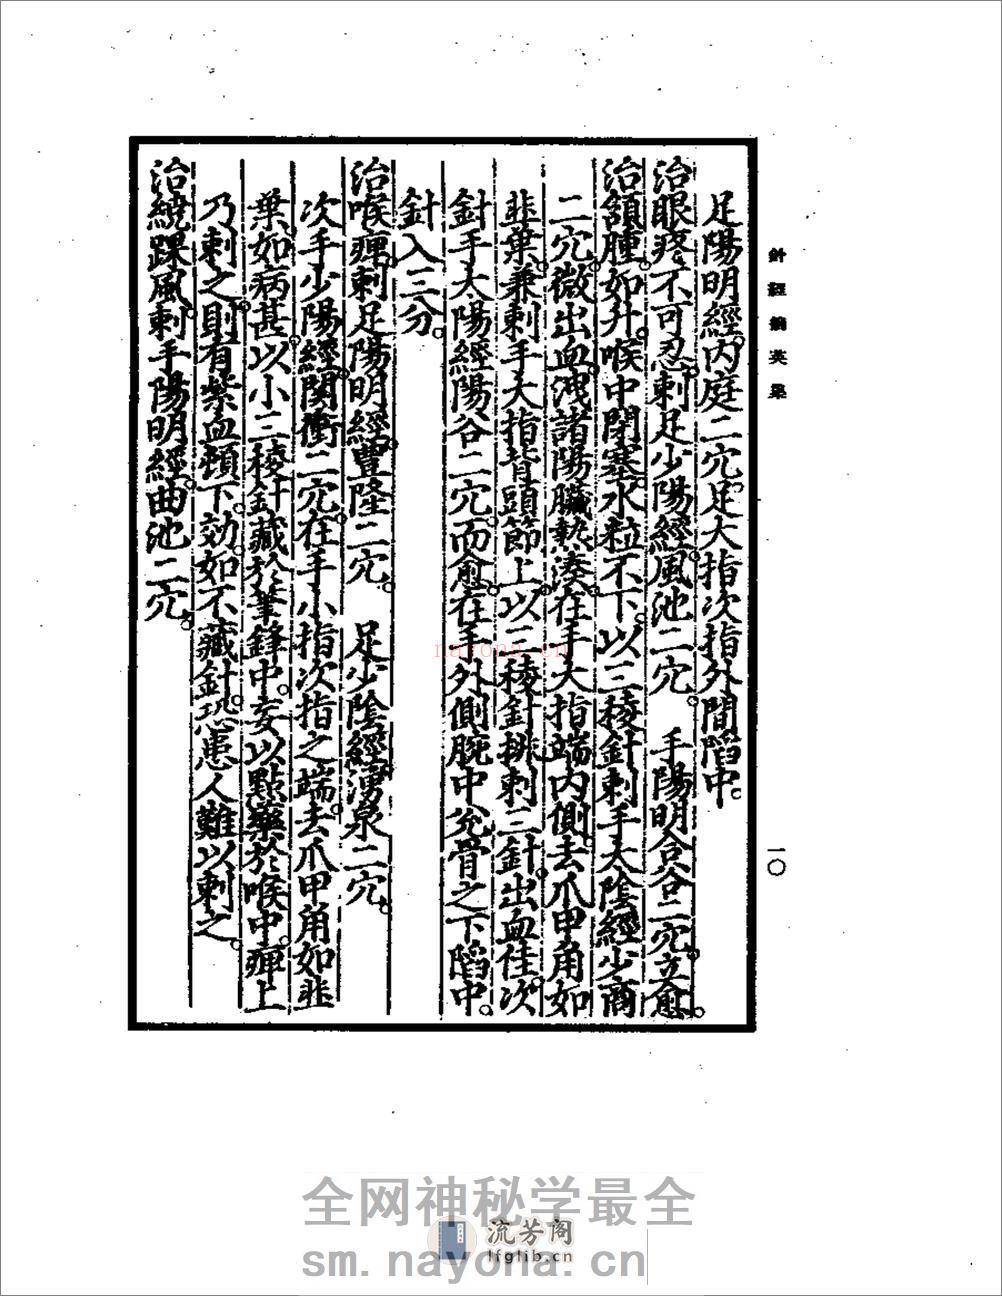 針經摘英集
一〇
足陽明經。內庭二穴。足大指次指外間陷中。
治眼疼不可忍。刺足少陽經。風池二穴。 手陽明合谷二穴。立愈。
治頷腫。如升。喉中閉塞。水粒不下。以三稜針刺手太陰經少商
二穴。微出血。洩諸陽臟熱湊。在手大指端內側。去爪甲角如
韭葉。兼刺手大指背頭節上。以三稜針排刺三針。出血佳。次
針手太陽經陽谷二穴。而愈。在手外側腕中兊骨之下陷中。
針入三分。
治喉痺。刺足陽明經。豐隆二穴。 足少陰經。湧泉二穴。
次手少陽經。関衝二穴。在手小指次指之端。去爪甲角如韭
葉。如病甚。以小三稜針藏於筆鋒中。妄以點藥於喉中。痺上
乃刺之。則有紫血頓下。効。如不藏針。恐患人難以刺之。
治繞踝風。刺手陽明經。曲池二穴。
nayona.cn
全网神秘学最全
流芳阁
lfglib.cn
sm.nayona.cn